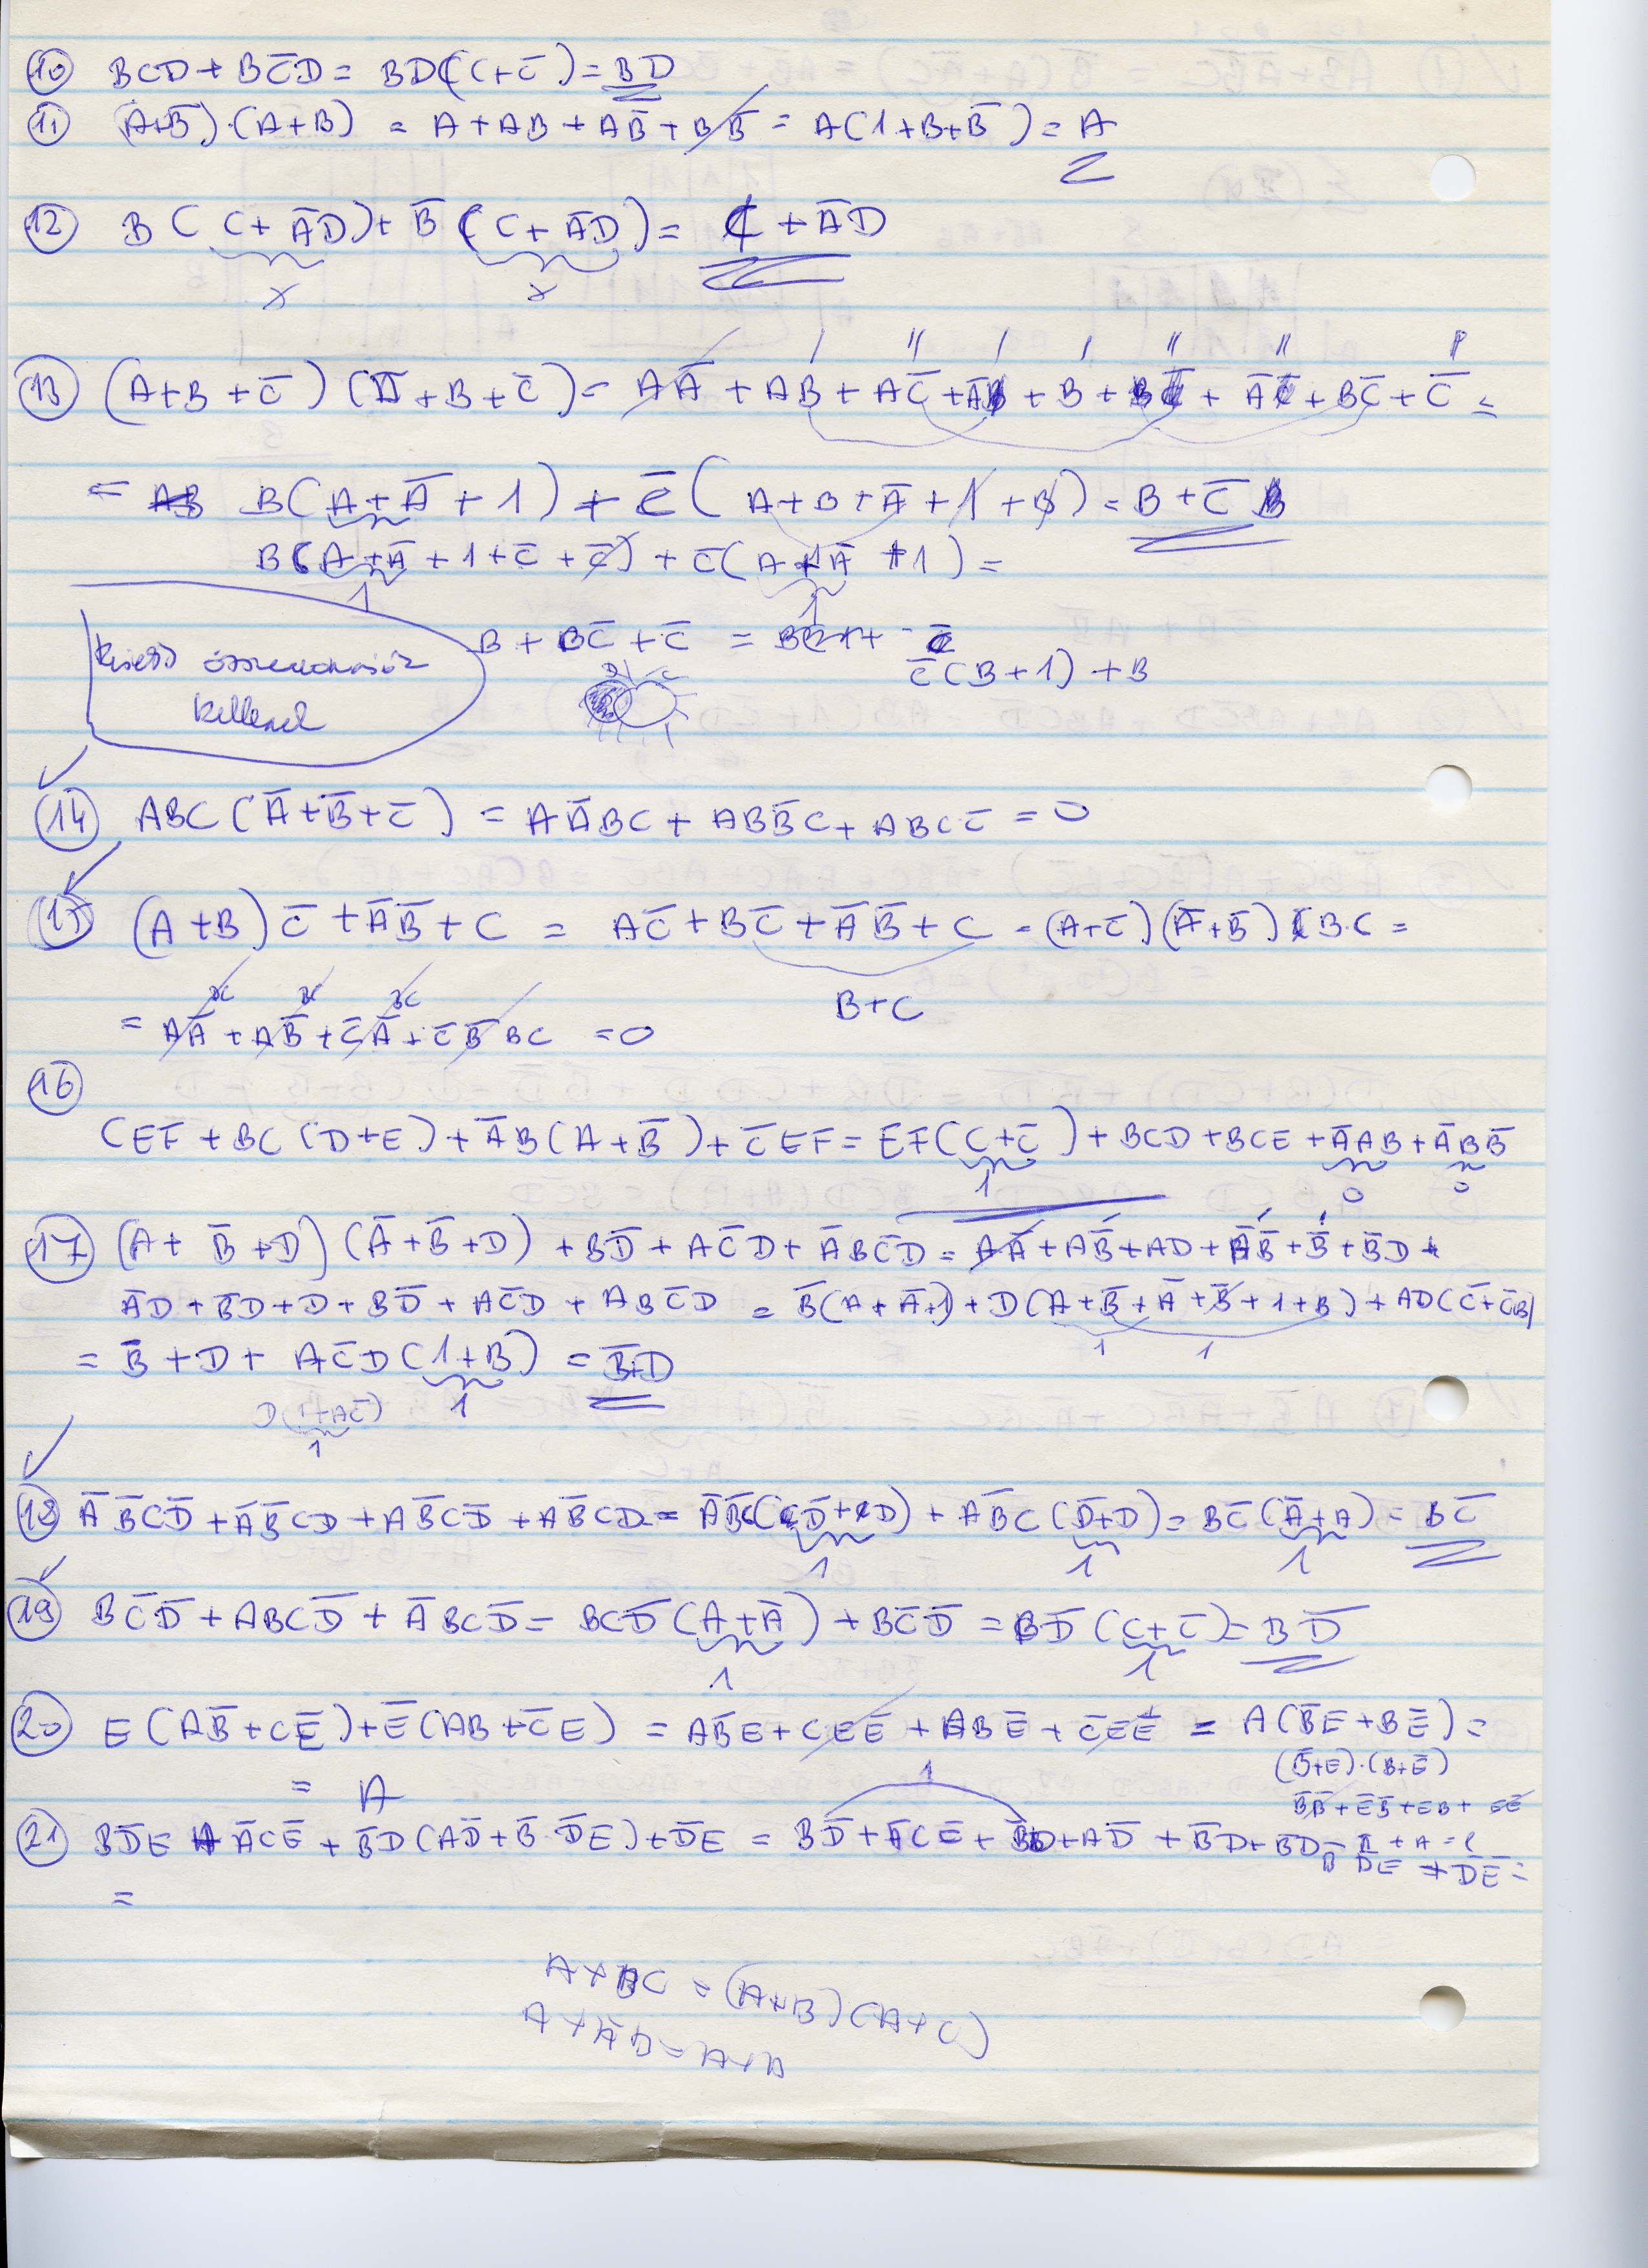 10 BCD + BC̅D = BD(C+C̅) = BD
11 (A+B̅)·(A+B) = A + AB + AB̅ + BB̅ = A(1+B+B̅) = A
12 B(C+A̅D) + B̅(C+A̅D) = C + A̅D
x x
13 (A+B+C̅)(A̅+B+C̅) = AA̅ + AB + AC̅ + A̅B + B + BC̅ + A̅C̅ + BC̅ + C̅ =
= B(A+A̅+1) + C̅(A+B+A̅+1+B) = B+C̅
B(A+A̅+1+C̅+C̅) + C̅(A+A̅+1) =
1 1
B + BC̅ + C̅ =
C̅(B+1) + B
14 ABC(A̅+B̅+C̅) = AA̅BC + ABB̅C + ABCC̅ = 0
15 (A+B)C̅ + A̅B̅ + C = AC̅ + BC̅ + A̅B̅ + C = (A+C̅)(A̅+B̅) B·C =
B+C
= AA̅ + AB̅ + C̅A̅ + C̅B̅ BC = 0
16
CEF + BC(D+E) + A̅B(A+B̅) + C̅EF = EF(C+C̅) + BCD + BCE + A̅AB + A̅BB̅
1 0 0
17 (A+B̅+D)(A̅+B̅+D) + BD̅ + AC̅D + A̅BC̅D = AA̅ + AB̅ + AD + A̅B̅ + B̅ + B̅D +
A̅D + B̅D + D + BD̅ + AC̅D + ABC̅D = B̅(A+A̅+1) + D(A+B̅+A̅+B̅+1+B) + AD(C̅+C̅B)
1 1
= B̅ + D + AC̅D(1+B) = B̅+D
D(1+AC̅) 1
1
18 A̅B̅CD̅ + A̅B̅CD + AB̅CD̅ + AB̅CD = A̅B̅C(CD̅+CD) + AB̅C(D̅+D) = BC̅(A̅+A) = BC̅
1 1 1
19 BC̅D̅ + ABCD̅ + A̅BCD̅ = BCD̅(A+A̅) + BC̅D̅ = BD̅(C+C̅) = BD̅
1 1
20 E(AB̅+CE̅) + E̅(AB+C̅E) = AB̅E + CEE̅ + ABE̅ + C̅EE̅ = A(B̅E+BE̅) =
(B̅+E)·(B+E̅)
= A
BB̅ + E̅B̅ + EB + EE̅
21 BD̅E + A̅CE̅ + B̅D(AD̅+B̅·D̅E) + D̅E = BD̅ + A̅CE̅ + B̅D + AD̅ + B̅D + BD
1
D̅E + D̅E̅ =
=
A+BC = (A+B)(A+C)